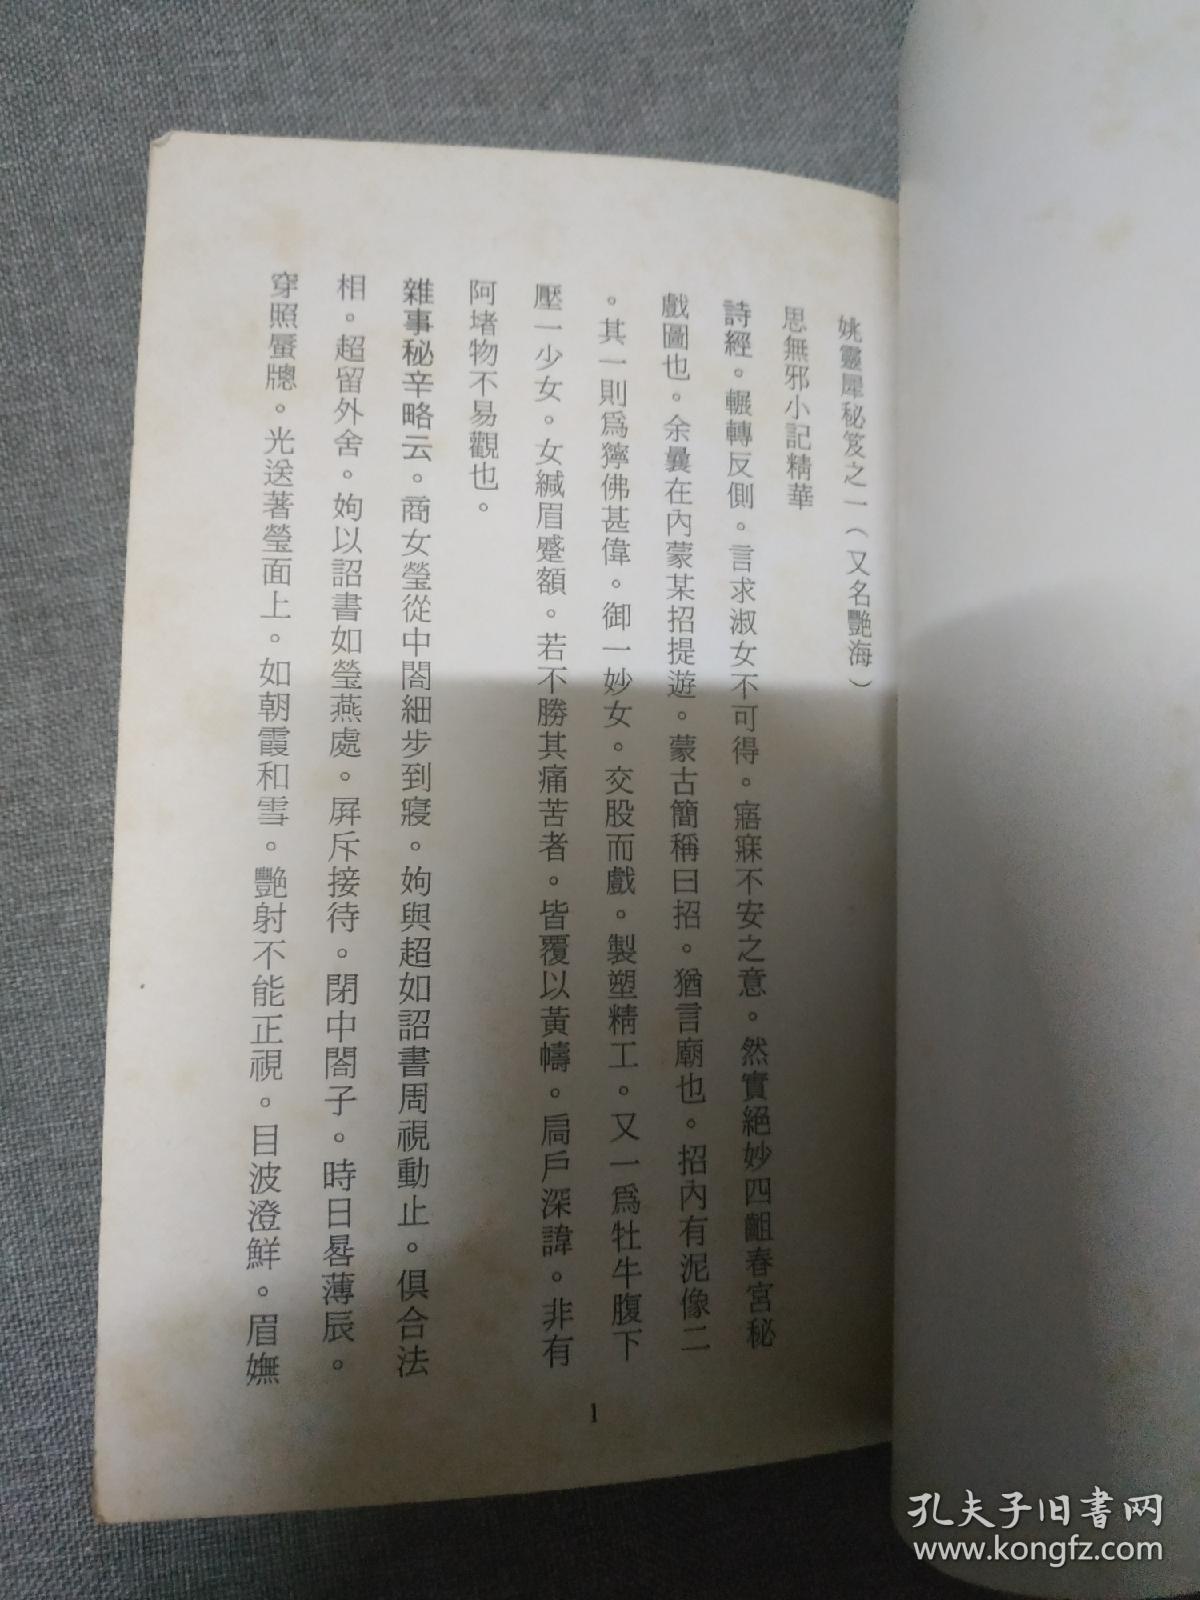 姚靈犀秘笈之一（又名艷海）
思無邪小記精華
詩經。輾轉反側。言求淑女不可得。寤寐不安之意。然實絕妙四齣春宮秘
戲圖也。余曩在內蒙某招提遊。蒙古簡稱曰招。猶言廟也。招內有泥像二
。其一則爲獰佛甚偉。御一妙女。交股而戲。製塑精工。又一爲牡牛腹下
壓一少女。女緘眉蹙額。若不勝其痛苦者。皆覆以黃幬。扃戶深諱。非有
阿堵物不易觀也。
雜事秘辛略云。商女瑩從中閤細步到寢。姁與超如詔書周視動止。俱合法
相。超留外舍。姁以詔書如瑩燕處。屏斥接待。閉中閤子。時日晷薄辰。
穿照蜃牕。光送著瑩面上。如朝霞和雪。艷射不能正視。目波澄鮮。眉嫵
1
孔夫子旧书网
www.kongfz.com